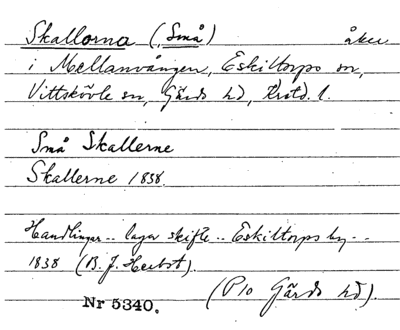 Skallorna (, Små) åker
i Mellanvången, Eskiltorps sn,
Vittskövle sn, Gärds hd, Krstd. l.
Små Skallerne
Skallerne 1838.
Handlingar .. laga skifte .. Eskiltorps by ..
1838 (B. J. Herbst).
(P 10 Gärds hd).
Nr 5340.